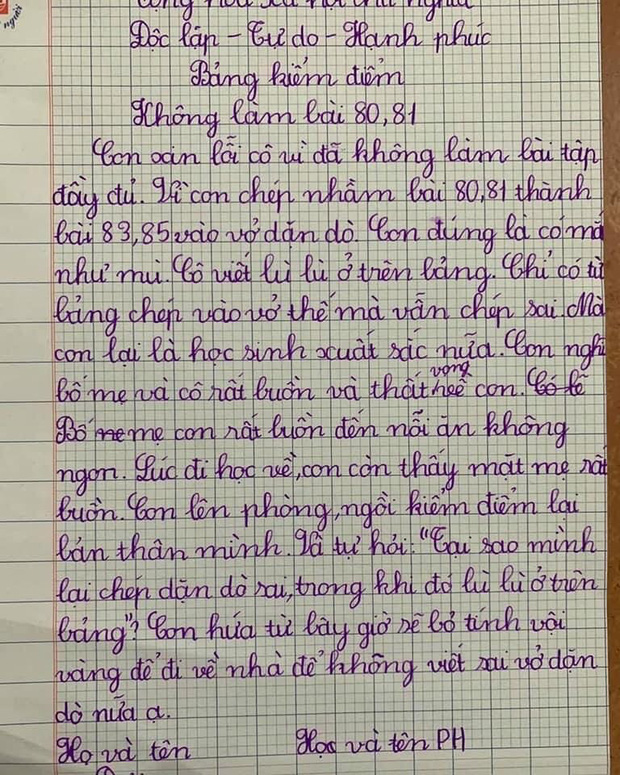 người
cộng hòa xã hội chủ nghĩa
Độc lập - Tự do - Hạnh phúc
Bảng kiểm điểm
Không làm bài 80,81
Con xin lỗi cô vì đã không làm bài tập
đầy đủ. Vì con chép nhầm bài 80,81 thành
bài 83,85 vào vở dặn dò. Con đúng là có mắ
như mù. Cô viết lù lù ở trên bảng. Chỉ có từ
bảng chép vào vở thế mà vẫn chép sai. Mà
con lại là học sinh xuất sắc nữa. Con nghĩ
bố mẹ và cô rất buồn và thất vọng về con. Có lẽ
Bố mẹ con rất buồn đến nỗi ăn không
ngon. Lúc đi học về, con còn thấy mặt mẹ rất
buồn. Con lên phòng, ngồi kiểm điểm lại
bản thân mình. Và tự hỏi: "Tại sao mình
lại chép dặn dò sai, trong khi đó lù lù ở trên
bảng"? Con hứa từ bây giờ sẽ bỏ tính vội
vàng để đi về nhà để không viết sai vở dặn
dò nữa ạ.
Họ và tên Học và tên PH